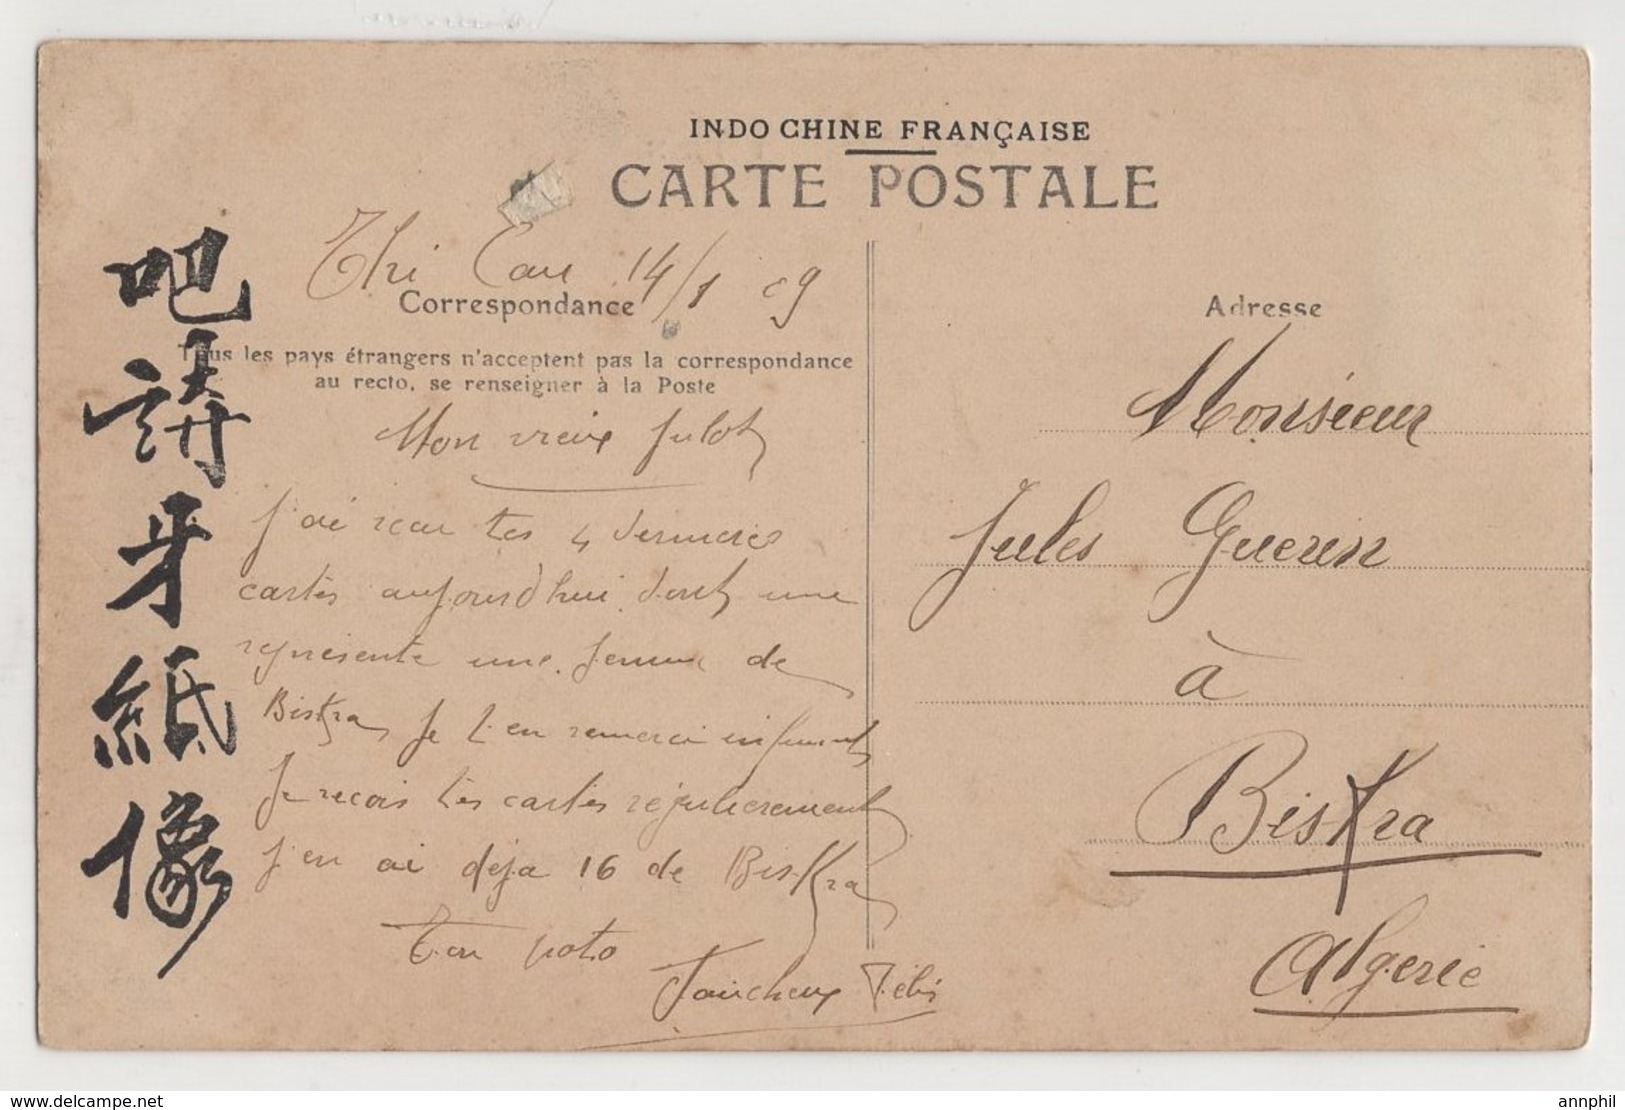 INDO CHINE FRANÇAISE
CARTE POSTALE
Thi Cau 14/1 09
Correspondance
Tous les pays étrangers n'acceptent pas la correspondance
au recto, se renseigner à la Poste
Mon vieux Julot
J'ai reçu tes 4 dernieres
cartes aujourd'hui dont une
represente une femme de
Biskra Je t'en remerci infiniment
Je recois tes cartes régulierement
J'en ai déja 16 de Biskra
Ton poto
Félix
吧
講
牙
紙
像
Adresse
Monsieur
Jules Guerin
à
Biskra
Algerie
delcampe.net
annphil